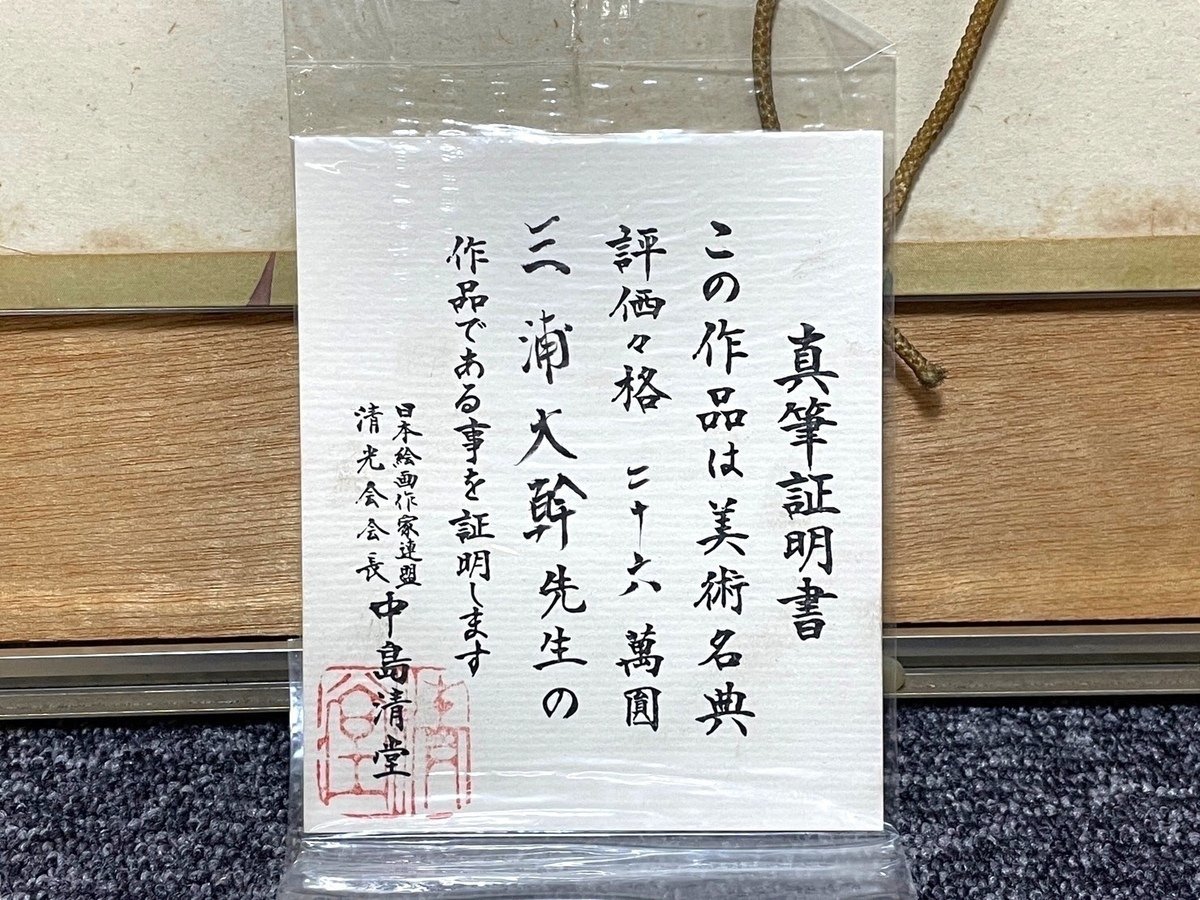 真筆証明書
この作品は美術名典
評価々格 二十六萬圓
三浦大幹先生の
作品である事を証明します
日本絵画作家連盟
清光会会長 中島清堂